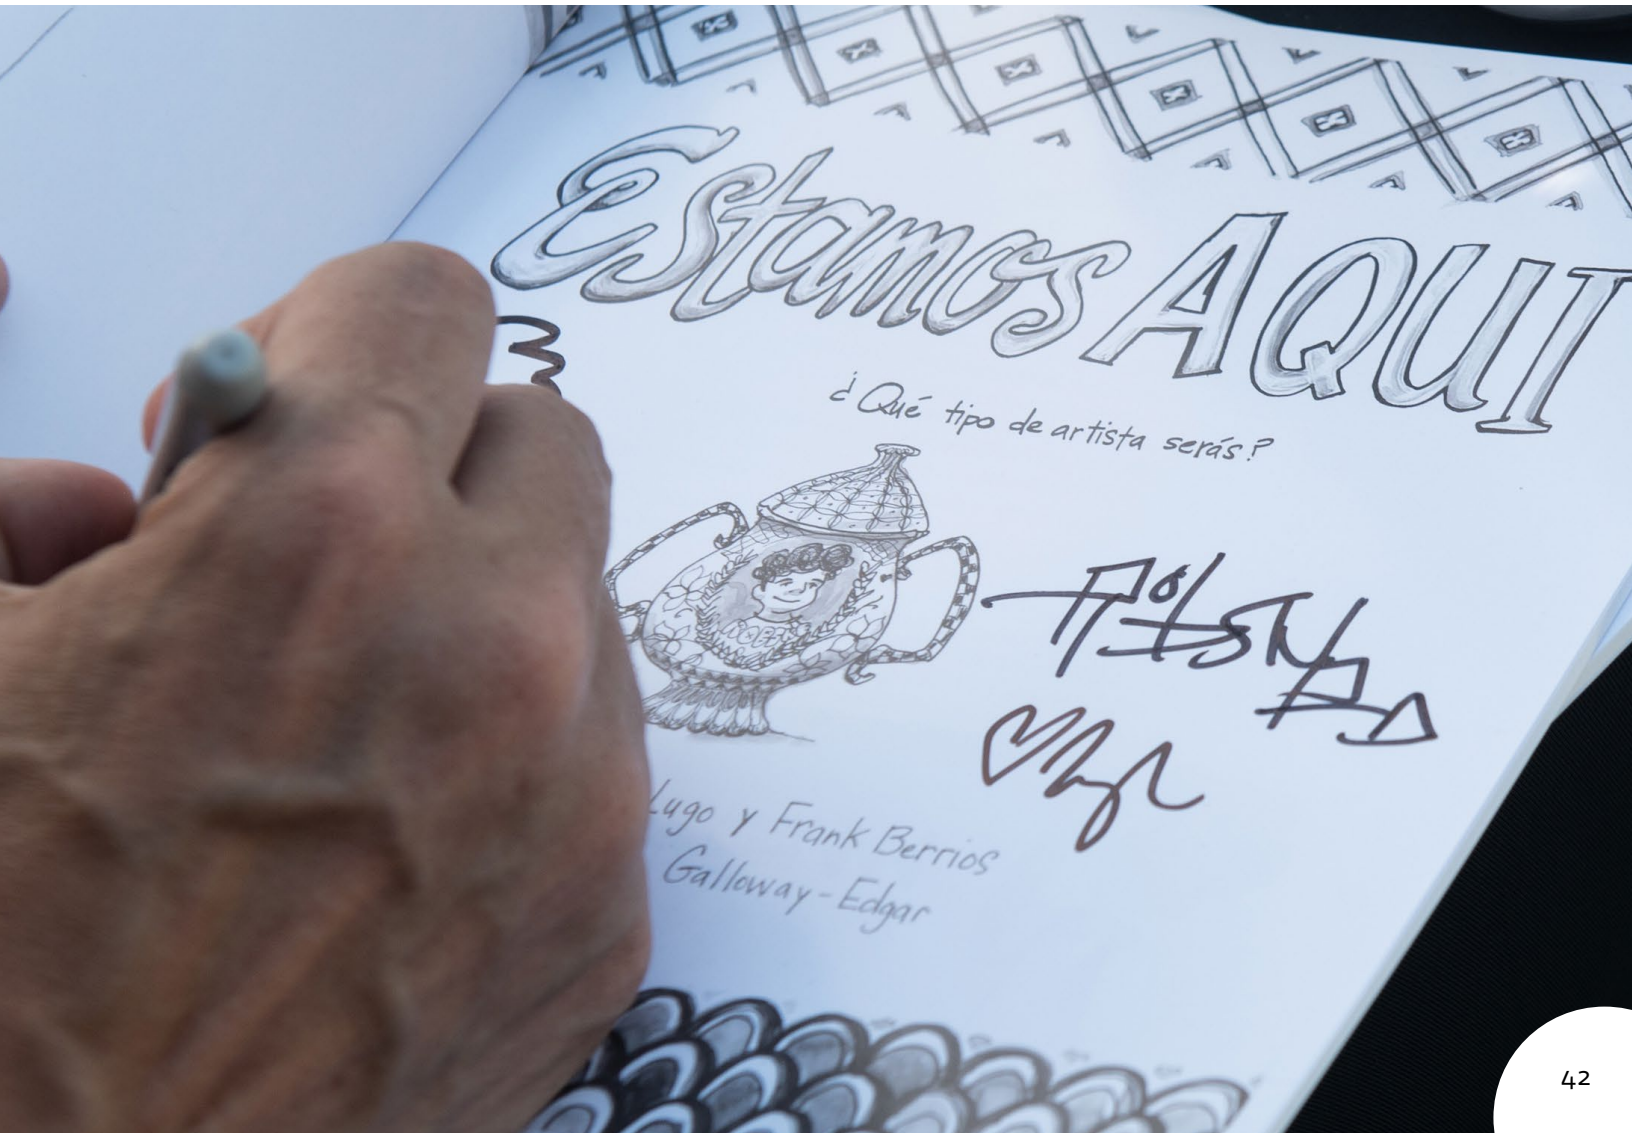 Estamos AQUI
¿Qué tipo de artista serás?
Lugo y Frank Berrios
Galloway-Edgar
42